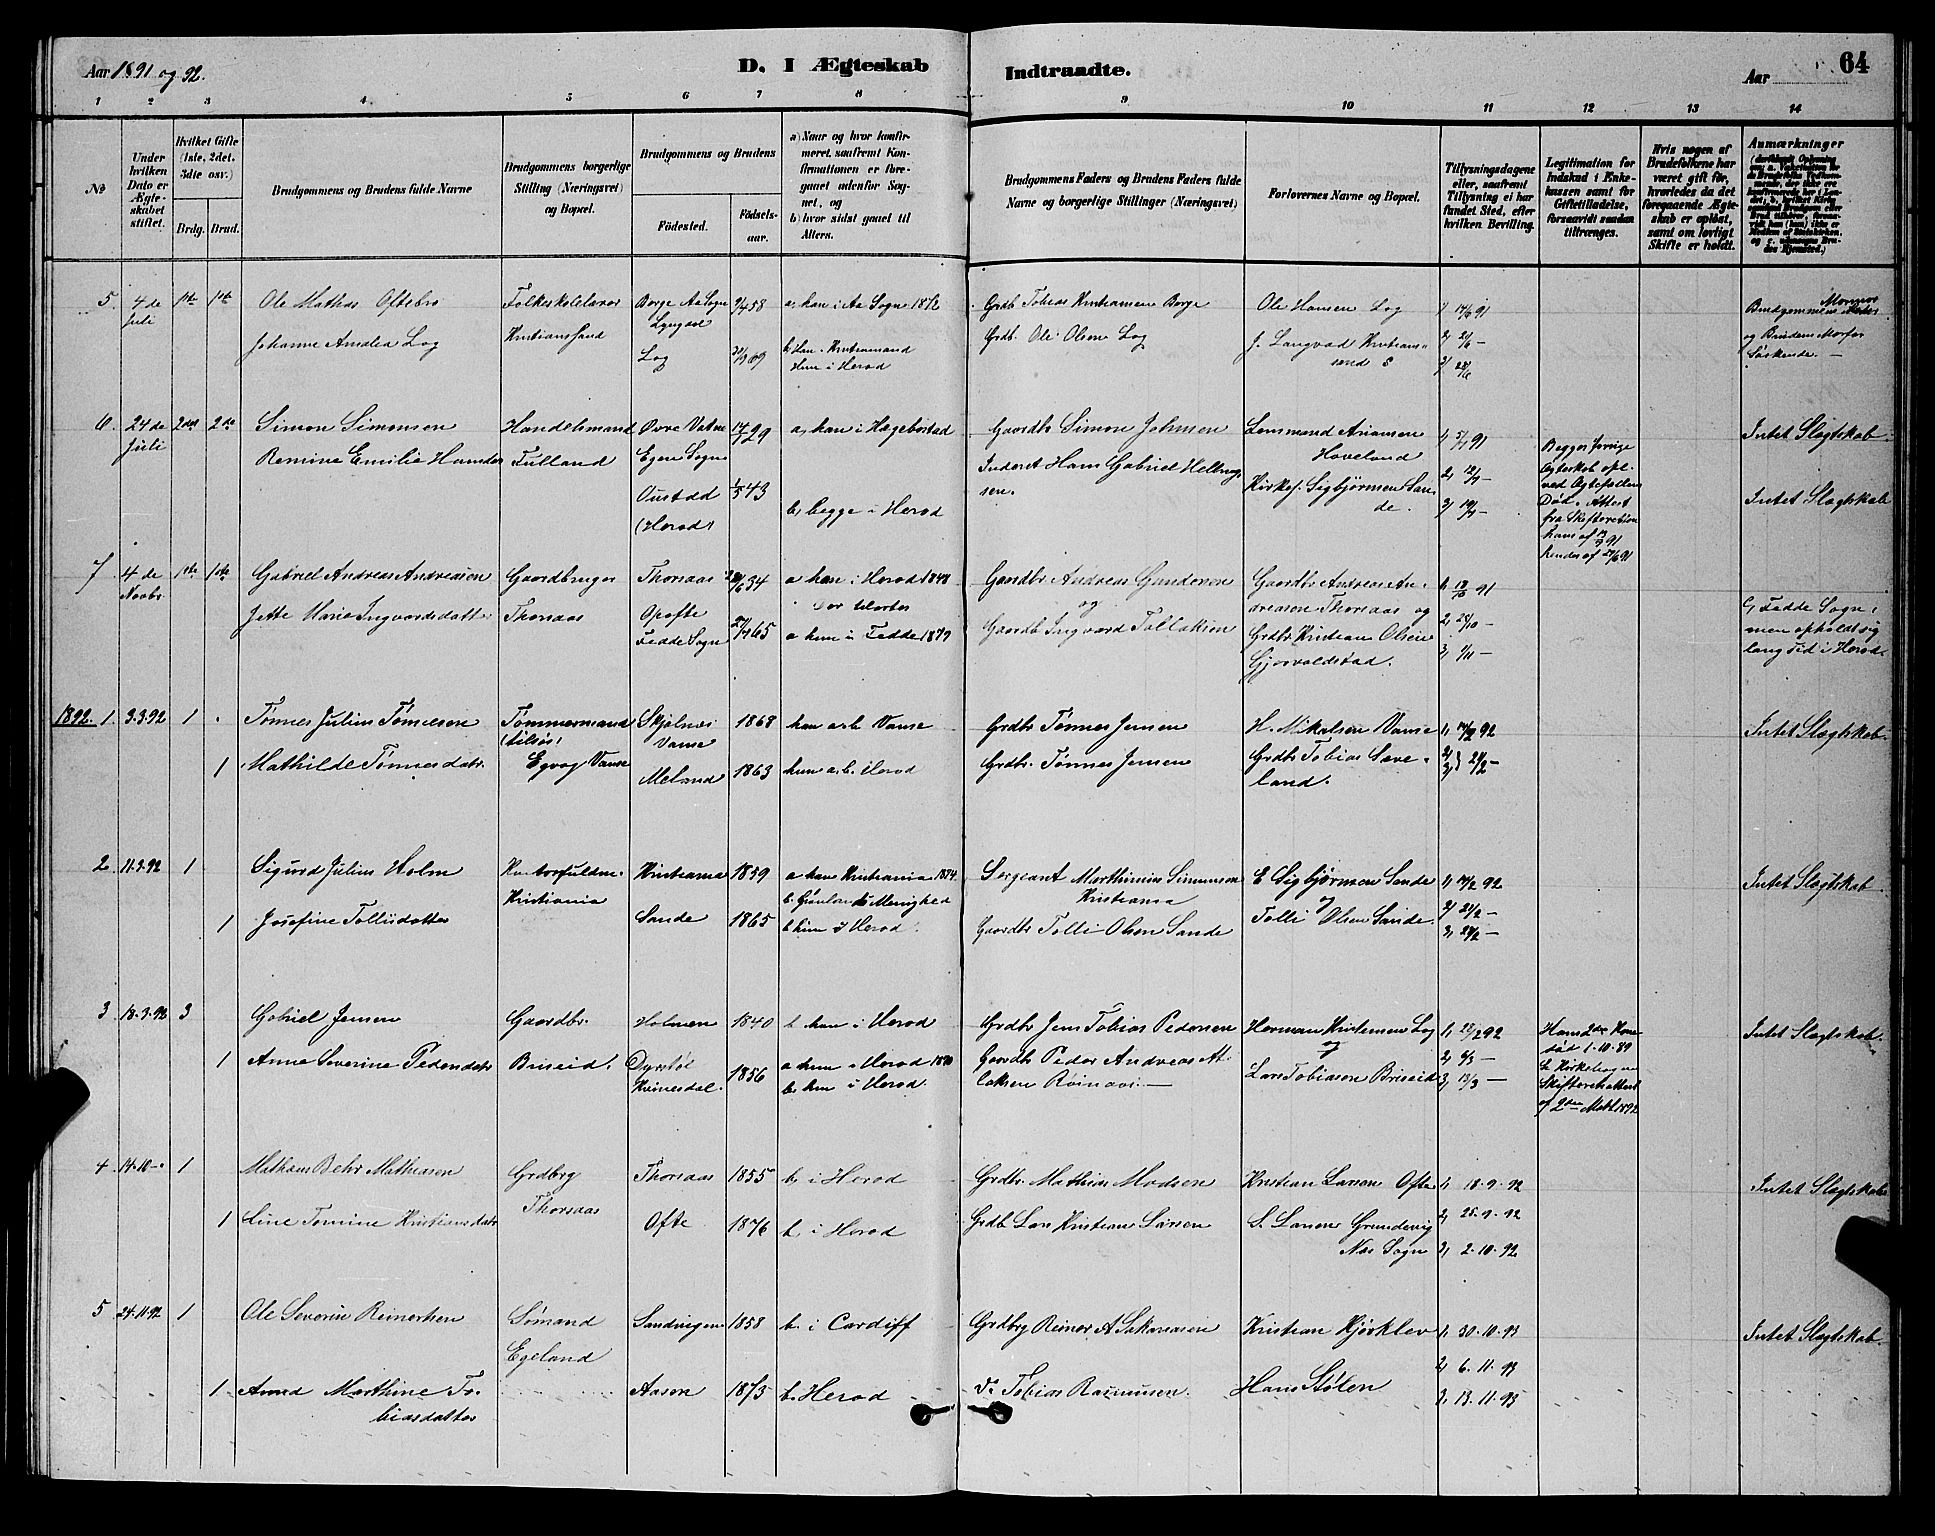 Aar 1891 og 92.
D. I Ægteskab
Indtraadte.
Aar
64
1 2 3 4 5 6 7 8 9 10 11 12 13 14
No
Under hvilken Dato er Ægteskabet stiftet.
Hvilket Gifte (1ste, 2det, 3die osv.)
Brdg. Brud.
Brudgommens og Brudens fulde Navne
Brudgommens borgerlige Stilling (Næringsvei) og Bopæl.
Brudgommens og Brudens
Fødested.
Fødselsaar.
a) Naar og hvor konfirmeret, saafremt Konfirmationen er foregaaet udenfor Sognet, og
b) hvor sidst gaaet til Alters.
Brudgommens Faders og Brudens Faders fulde Navne og borgerlige Stillinger (Næringsvei)
Forlovernes Navne og Bopæl.
Tillysningsdagene eller, saafremt Tillysning ei har fundet Sted, efter hvilken Bevilling.
Legitimation for Indskud i Enkekassen samt for Giftetilladelse, forsaavidt saadan tiltrænges.
Hvis nogen af Brudefolkene har været gift før, hvorledes da det foregaaende Ægteskab er opløst, samt om lovligt Skifte er holdt.
Anmærkninger
5 4de Juli 1ste 1ste
Ole Mathias Oftebro
Johanne Amalia Log
Folkeskolelærer
Kristianssand
Borge Aa Sogn
Lyngdal
Log
a, han i Aa Sogn 1872
b, Han i Kristianssand
Hun i Herod
Grdb. Tobias Kristiansen Borge
Grdb. Ole Olsen Log
Ole Hansen Log
J. Langvad Kristianssand S
1, 14/6 91
2, 21/6 –
3, 28/6
Brudgommens
og Brudens Morfar
Søskende. –
6 24de Juli 2det 2de
Simon Simonsen
Remine Emilie Hansdtr
Handelsmand
Tulland
Øvre Vatne
Egen Sogn
Oustad
(Herod)
14/7 29
1/5 43
a, han i Hægebostad
b, begge i Herod
Gaardbr Simon Johnsen
Inderst Hans Gabriel Helbregsen.
Lensmand Ariansen
Haveland
Kirkes. Sigbjørnsen Sande.
1, 5/7 91
2, 12/7 –
3, 19/7 –
Begges forrige
Ægteskab opl.
ved Ægtefællens
Død. Attest
fra Skifteretten
hans af
hendes af 27/6 91
Intet Slægtskab
Intet Slægtskab
7 4de Novbr. 1ste 1ste
Gabriel Andreas Andreasen
Jette Maria Ingvardsdatt.
Gaardbruger
Thorsaas
Thorsaas
Opofte
Fedde Sogn
34
65
a han i Herod 1848
a hun i Fedde 1879
Gaardbr Andreas Gundersen
og
Gaardb Ingvard Tollaksen
Gaardbr Andreas Andreasen Thorsaas og
Grdbr Kristian Olsen
Gjervoldstad.
1, 18/10 91
2, 25/10 –
3, 1/11 –
Fedde Sogn
men opholdt sig
lang Tid i Herod
1892. 1 3.3.92 1
Tønnes Julius Tønnesen
1 Mathilde Tønnesdatr.
Tømmermand
Egvog Vanse
Skjolnes
Vanse
Meland
1868
1863
han a.b. Vanse
hun a.b. Herod
Grdbr Tønnes Jensen
Grdbr. Tønnes Jensen
H. Mikalsen Vanse
Grdbr Tobias Sæveland.
1, 14/2 92
2, 3, 21/2 –
Intet Slægtskab.
2 11.3.92 1
Sigurd Julius Holm
1 Josefine Tollisdatter
Kontorfuldm.
Kristiania
Kristiania
Sande
1859
1865
a han Kristiania 1874.
b. Grønlands Menighed
b hun i Herod.
Sergeant Marthinius Simensen
Kristiania
Gaardbr Tolli Olsen Sande
E Sigbjørnsen Sande
og
Tolli Olsen Sande.
1, 14/2 92
2, 21/2 –
3, 28/2 –
Intet Slægtskab
3 18.3.92 3
Gabriel Jensen
1 Anne Severine Pedersdatr
Gaardbr.
Briseid.
Holmen
Dyrstøl
Kvinesdal.
1840
1856
b han i Herod
a hun i Herod 1870
b. hun i Herod.
Grdbr Jens Tobias Pedersen
Gaardbr Peder Andreas Atlaksen Røinaas. –
Herman Kristensen Log
og
Lars Tobiasen Briseid
1, 28/2 92
2, 6/3 –
3, 13/3 –
Hans 2den Kone
død 1.10.89
Skifteretsattest
af 2den Marts 1892
Intet Slægtskab.
4 14.10 – 1
Mathias Behr Mathiasen
1 Line Tomine Kristiansdatr
Grdbrg
Thorsaas
Thorsaas
Ofte
1855
1876
b. i Herod
b i Herod
Grdbr. Mathias Madsen
Grdb Lars Kristian Larsen
Kristian Larsen Ofte
S. Larsen Grundevig
Næs Sogn
1, 18.9.92
2, 25.9.92
3, 2.10.92
Intet Slægtskab
5 24.11.92 1
Ole Severin Reinertsen
1 Anna Marthine Tobiasdatter
Sømand
Egeland
Sandvigen
Aasen
1858
1873
b. i Cardiff
b. Herod
Grdbrg Reiner A Sakariasen
Do Tobias Rasmussen.
Kristian Kjørklev
Hans Stølen
1, 30.10.93
2, 6.11.93
3, 13.11.93
Intet Slægtskab.